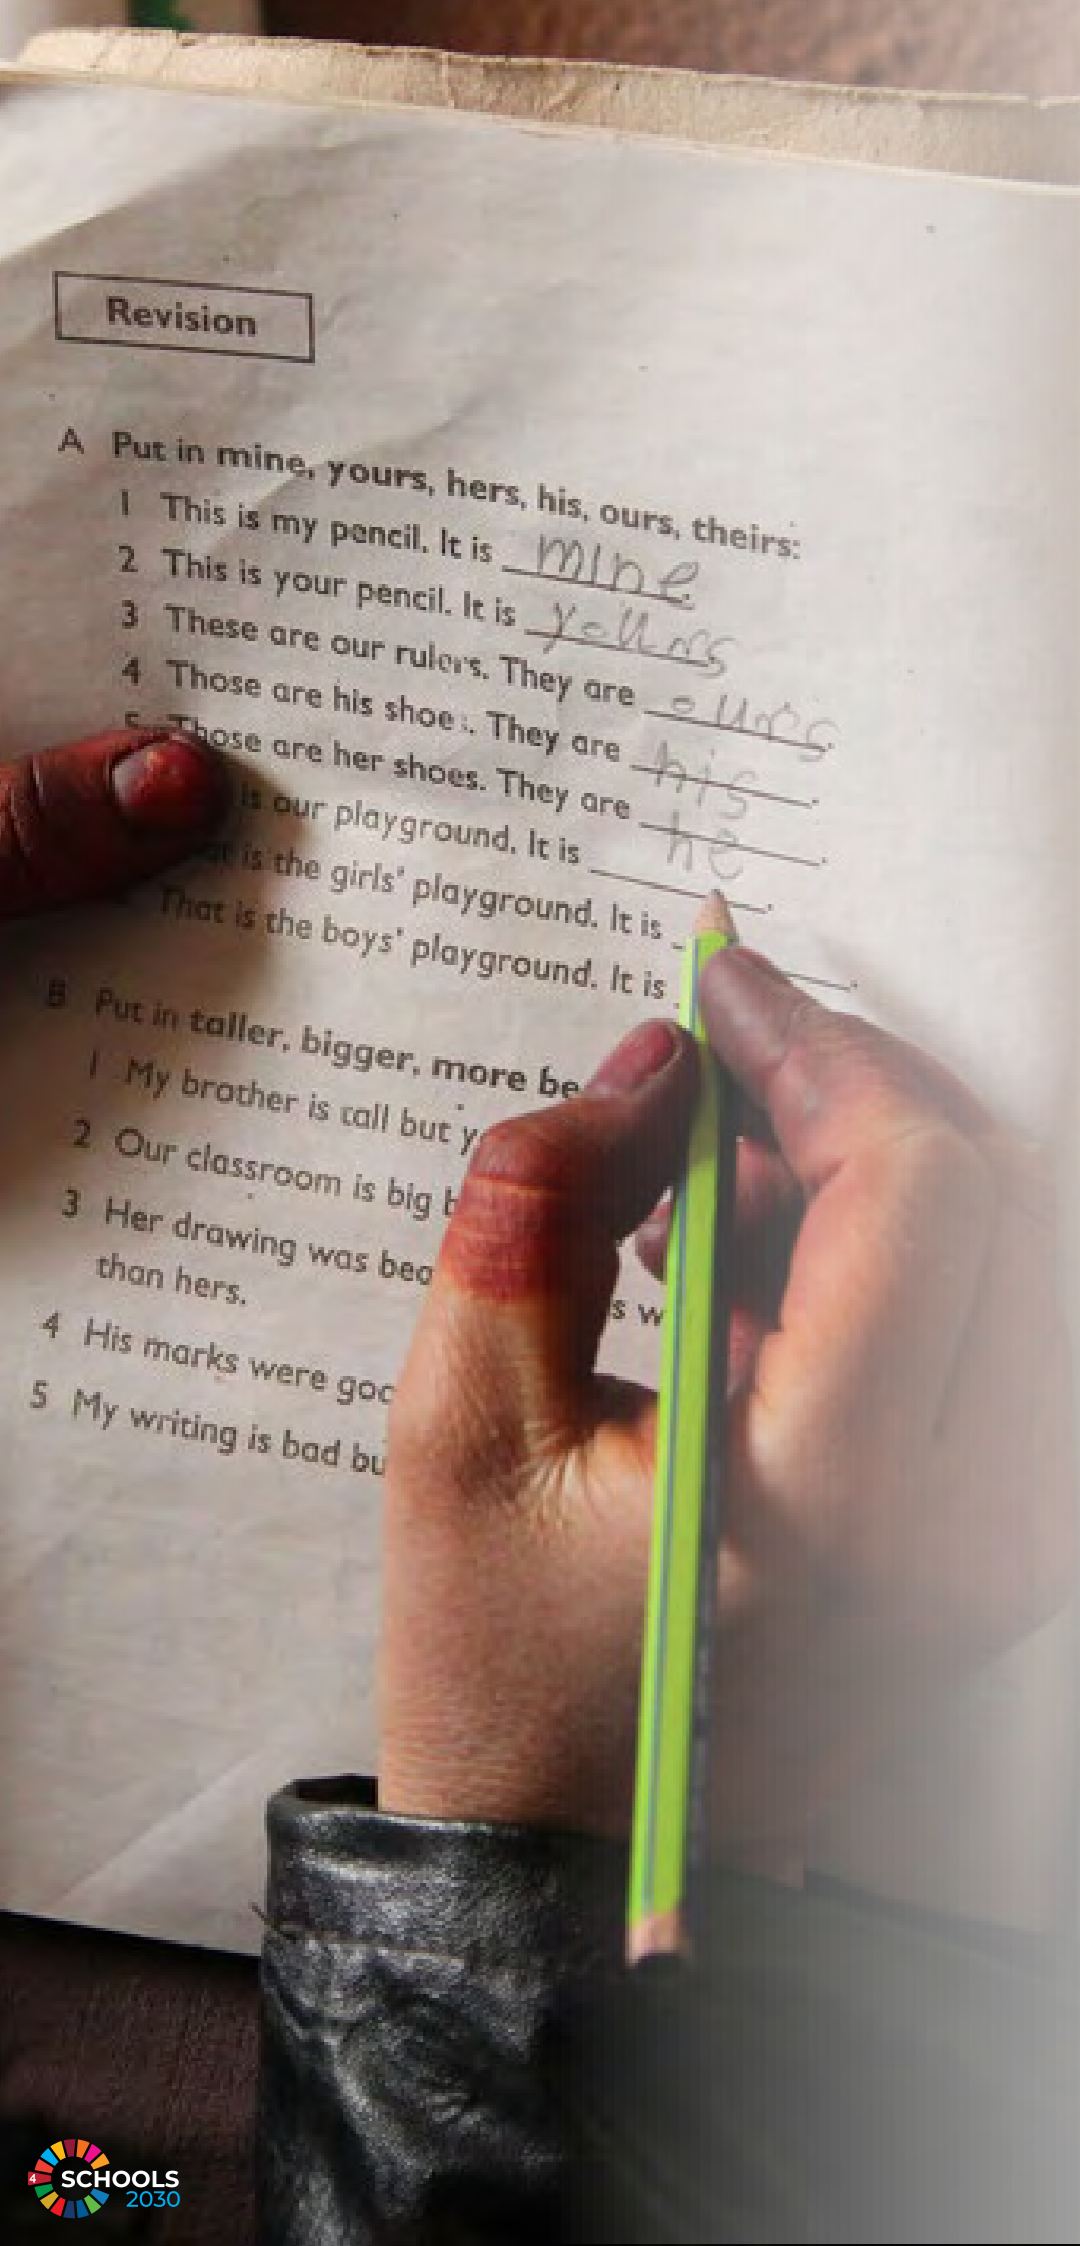 Revision
A Put in mine, yours, hers, his, ours, theirs:
1 This is my pencil. It is mine.
2 This is your pencil. It is yours
3 These are our rulers. They are ours.
4 Those are his shoes. They are his.
5 Those are her shoes. They are he.
is our playground. It is .
is the girls' playground. It is .
That is the boys' playground. It is
B Put in taller, bigger, more be
1 My brother is tall but y
2 Our classroom is big b
3 Her drawing was bea s w
than hers.
4 His marks were goo
5 My writing is bad bu
4 SCHOOLS
2030